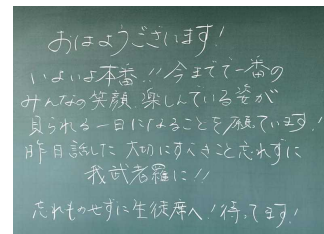 おはようございます!
いよいよ本番!!今までで一番の
みんなの笑顔、楽しんでいる姿が
見られる一日になることを願ています!
昨日話した大切にすべきこと忘れずに
我武者羅に!!
忘れものせずに生徒席へ!待ってます!